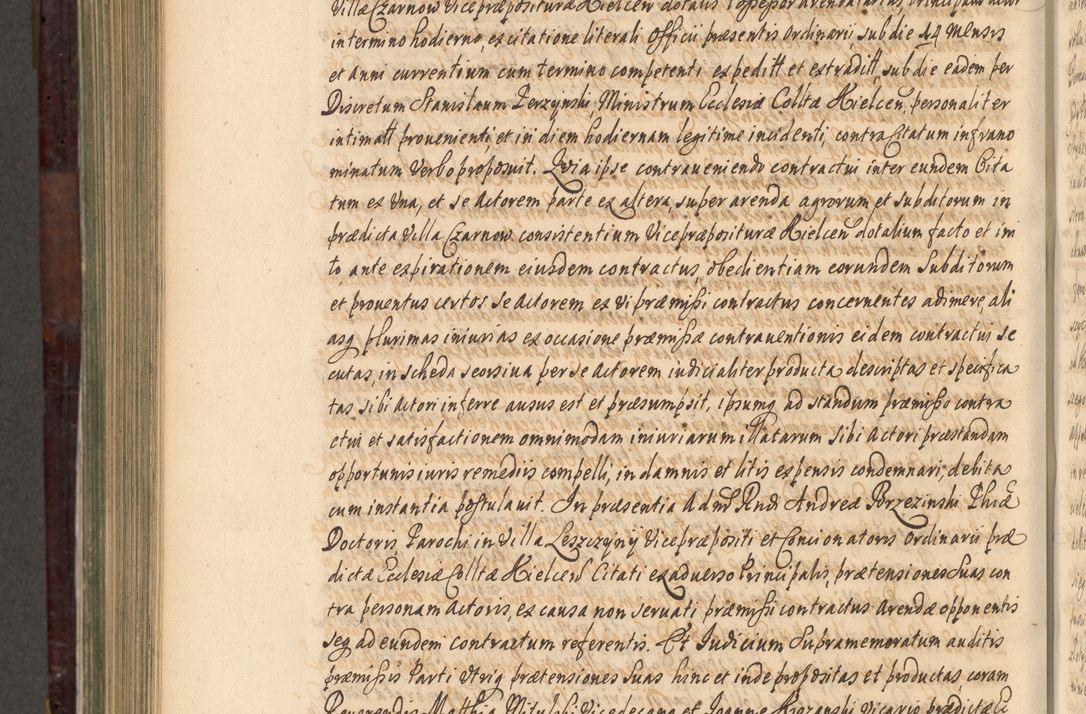 Villa Czarnow Vicepræpositura Kielcen dotalis
in termino hodierno, ex citatione literali Officii præsentis Ordinarii, sub die 14 Mensis
et Anni currentium cum termino competenti expeditt et extraditt, sub die eadem per
Discretum Stanislaum Perzynski Ministrum Ecclesiæ Colltæ Kielcen, personaliter
intimatt prouenienti, et in diem hodiernam legitime incidenti, contra Citatum in fra no
minatum Verbo proposuit. Qvia ipse contraueniendo contractui inter eundem Cita
tum ex Vna, et se Actorem parte ex altera, super arenda agrorum et subditorum in
prædicta Villa Czarnow consistentium Vicepræposituræ Kielcen dotalium facto et ini
to, ante expirationem eiusdem contractus, obedientiam eorundem Subditorum
et prouentus certos se Actorem ex vi præmissi contractus concernentes adimere, ali
asq plurimas iniurias ex occasione præmissæ contrauentionis eidem contractui se
cutas, in scheda seorsiua per se Actorem iudicialiter producta descriptas et specifica
tas sibi Actori inferre ausus est et præsumpsit, ipsumq ad standum præmisso contra
ctui et satisfactionem omnimodam iniuriarum illatarum sibi Actori præstandam
opportunis iuris remediis compelli, in damnis et litis expensis condemnari, debita
cum instantia postulauit. In præsentia Admd Rndi Andreæ Brzezinski Phiæ
Doctoris Parochi in Villa Leszczyny Vicepræpositi et Concionatoris Ordinarii præ
dictæ Ecclesiæ Colltæ Kielcen Citati ex aduerso Principalis, prætensiones suas con
tra personam Actoris, ex causa non seruati præmissi contractus Arendæ opponentis
seq ad eundem contractum referentis. Et Iudicium Supramemoratum auditis
præmissis Parti Vtriq prætensiones suas hinc et inde propositas et productas, coram
Reuerendis Matthia Nitulski Vicedecano et Ioanne Kozanski Vicario prædictæ